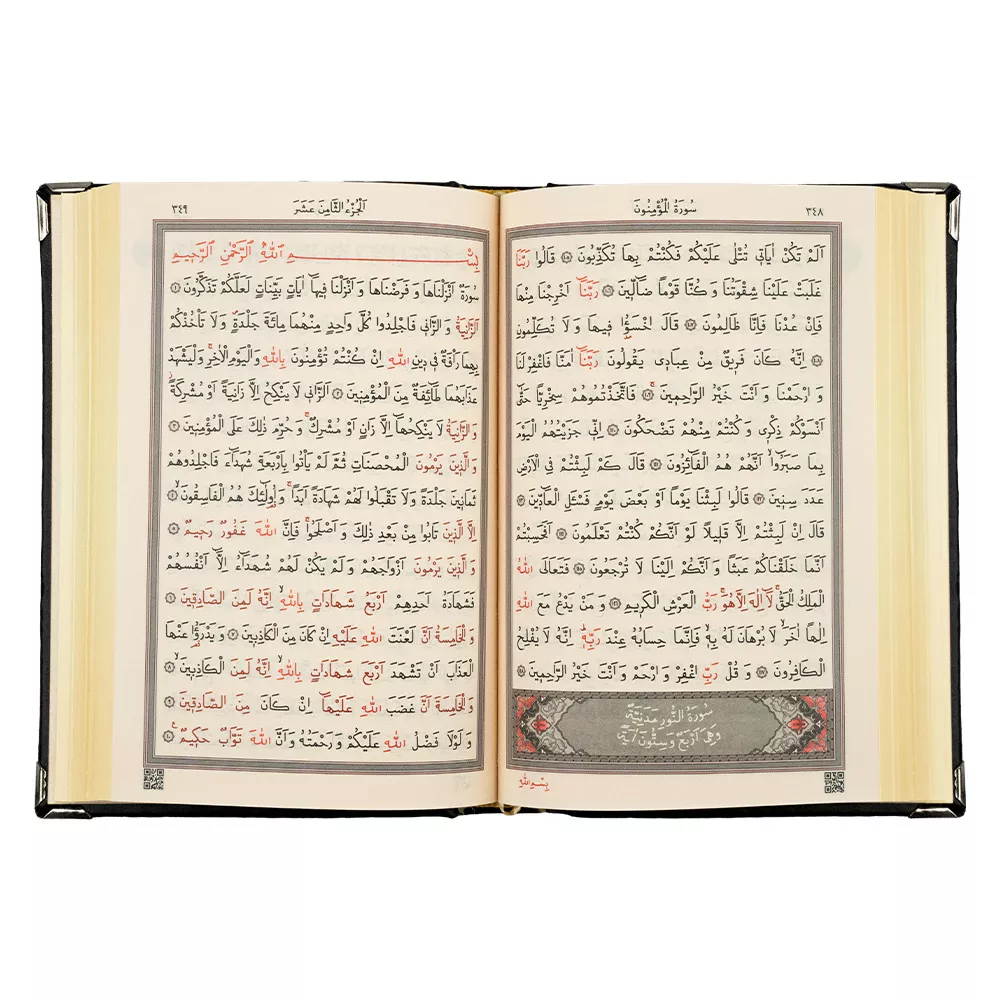 ٣٤٨
سُورَةُ الْمُؤْمِنُونَ
اَلَمْ تَكُنْ اٰيَاتٖى تُتْلٰى عَلَيْكُمْ فَكُنْتُمْ بِهَا تُكَذِّبُونَ ﴿١٠٥﴾ قَالُوا رَبَّنَا
غَلَبَتْ عَلَيْنَا شِقْوَتُنَا وَكُنَّا قَوْمًا ضَٓالّٖينَ ﴿١٠٦﴾ رَبَّنَٓا اَخْرِجْنَا مِنْهَا
فَاِنْ عُدْنَا فَاِنَّا ظَالِمُونَ ﴿١٠٧﴾ قَالَ اخْسَؤُ۫ا فٖيهَا وَلَا تُكَلِّمُونِ
﴿١٠٨﴾ اِنَّهُ كَانَ فَرٖيقٌ مِنْ عِبَادٖى يَقُولُونَ رَبَّنَٓا اٰمَنَّا فَاغْفِرْلَنَا
وَارْحَمْنَا وَاَنْتَ خَيْرُ الرَّاحِمٖينَ ﴿١٠٩﴾ فَاتَّخَذْتُمُوهُمْ سِخْرِيًّا حَتّٰٓى
اَنْسَوْكُمْ ذِكْرٖى وَكُنْتُمْ مِنْهُمْ تَضْحَكُونَ ﴿١١٠﴾ اِنّٖى جَزَيْتُهُمُ الْيَوْمَ
بِمَا صَبَرُٓوا اَنَّهُمْ هُمُ الْفَٓائِزُونَ ﴿١١١﴾ قَالَ كَمْ لَبِثْتُمْ فِى الْاَرْضِ
عَدَدَ سِنٖينَ ﴿١١٢﴾ قَالُوا لَبِثْنَا يَوْمًا اَوْ بَعْضَ يَوْمٍ فَسْـَٔلِ الْعَٓادّٖينَ ﴿١١٣﴾
قَالَ اِنْ لَبِثْتُمْ اِلَّا قَلٖيلًا لَوْ اَنَّكُمْ كُنْتُمْ تَعْلَمُونَ ﴿١١٤﴾ اَفَحَسِبْتُمْ
اَنَّمَا خَلَقْنَاكُمْ عَبَثًا وَاَنَّكُمْ اِلَيْنَا لَا تُرْجَعُونَ ﴿١١٥﴾ فَتَعَالَى اللّٰهُ
الْمَلِكُ الْحَقُّ لَٓا اِلٰهَ اِلَّا هُوَ رَبُّ الْعَرْشِ الْكَرٖيمِ ﴿١١٦﴾ وَمَنْ يَدْعُ مَعَ اللّٰهِ
اِلٰهًا اٰخَرَ لَا بُرْهَانَ لَهُ بِهٖ فَاِنَّمَا حِسَابُهُ عِنْدَ رَبِّهٖ اِنَّهُ لَا يُفْلِحُ
الْكَافِرُونَ ﴿١١٧﴾ وَقُلْ رَبِّ اغْفِرْ وَارْحَمْ وَاَنْتَ خَيْرُ الرَّاحِمٖينَ ﴿١١٨﴾
سُورَةُ النُّورِ مَدَنِيَّةٌ
وَهِىَ اَرْبَعٌ وَسِتُّونَ اٰيَةً
بِسْمِ اللّٰهِ
اَلْجُزْءُ الثَّامِنَ عَشَرَ
٣٤٩
بِسْمِ اللّٰهِ الرَّحْمٰنِ الرَّحٖيمِ
سُورَةٌ اَنْزَلْنَاهَا وَفَرَضْنَاهَا وَاَنْزَلْنَا فٖيهَٓا اٰيَاتٍ بَيِّنَاتٍ لَعَلَّكُمْ تَذَكَّرُونَ ﴿١﴾
اَلزَّانِيَةُ وَالزَّانٖى فَاجْلِدُوا كُلَّ وَاحِدٍ مِنْهُمَا مِائَةَ جَلْدَةٍ وَلَا تَأْخُذْكُمْ
بِهِمَا رَأْفَةٌ فٖى دٖينِ اللّٰهِ اِنْ كُنْتُمْ تُؤْمِنُونَ بِاللّٰهِ وَالْيَوْمِ الْاٰخِرِ وَلْيَشْهَدْ
عَذَابَهُمَا طَٓائِفَةٌ مِنَ الْمُؤْمِنٖينَ ﴿٢﴾ اَلزَّانٖى لَا يَنْكِحُ اِلَّا زَانِيَةً اَوْ مُشْرِكَةً
وَالزَّانِيَةُ لَا يَنْكِحُهَٓا اِلَّا زَانٍ اَوْ مُشْرِكٌ وَحُرِّمَ ذٰلِكَ عَلَى الْمُؤْمِنٖينَ ﴿٣﴾
وَالَّذٖينَ يَرْمُونَ الْمُحْصَنَاتِ ثُمَّ لَمْ يَأْتُوا بِاَرْبَعَةِ شُهَدَٓاءَ فَاجْلِدُوهُمْ
ثَمَانٖينَ جَلْدَةً وَلَا تَقْبَلُوا لَهُمْ شَهَادَةً اَبَدًا وَاُو۬لٰٓئِكَ هُمُ الْفَاسِقُونَ ﴿٤﴾
اِلَّا الَّذٖينَ تَابُوا مِنْ بَعْدِ ذٰلِكَ وَاَصْلَحُوا فَاِنَّ اللّٰهَ غَفُورٌ رَحٖيمٌ ﴿٥﴾
وَالَّذٖينَ يَرْمُونَ اَزْوَاجَهُمْ وَلَمْ يَكُنْ لَهُمْ شُهَدَٓاءُ اِلَّٓا اَنْفُسُهُمْ
فَشَهَادَةُ اَحَدِهِمْ اَرْبَعُ شَهَادَاتٍ بِاللّٰهِ اِنَّهُ لَمِنَ الصَّادِقٖينَ ﴿٦﴾
وَالْخَامِسَةُ اَنَّ لَعْنَتَ اللّٰهِ عَلَيْهِ اِنْ كَانَ مِنَ الْكَاذِبٖينَ ﴿٧﴾ وَيَدْرَؤُ۬ا عَنْهَا
الْعَذَابَ اَنْ تَشْهَدَ اَرْبَعَ شَهَادَاتٍ بِاللّٰهِ اِنَّهُ لَمِنَ الْكَاذِبٖينَ ﴿٨﴾
وَالْخَامِسَةَ اَنَّ غَضَبَ اللّٰهِ عَلَيْهَٓا اِنْ كَانَ مِنَ الصَّادِقٖينَ ﴿٩﴾
وَلَوْلَا فَضْلُ اللّٰهِ عَلَيْكُمْ وَرَحْمَتُهُ وَاَنَّ اللّٰهَ تَوَّابٌ حَكٖيمٌ ﴿١٠﴾